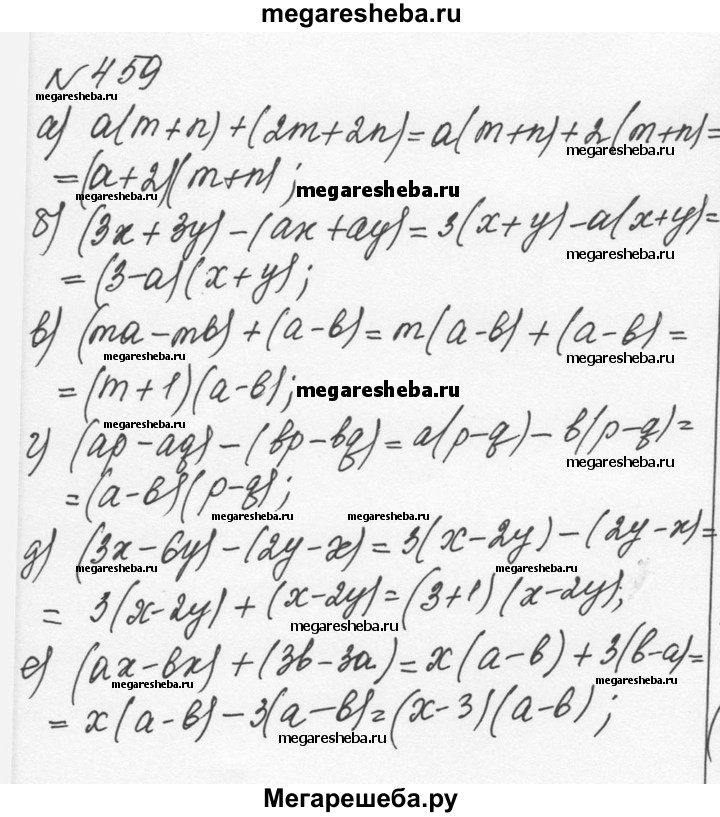 megaresheba.ru
№ 459
megaresheba.ru
а) a(m+n)+(2m+2n)=a(m+n)+2(m+n)=
megaresheba.ru
=(a+2)(m+n);
megaresheba.ru megaresheba.ru
б) (3x+3y)-(ax+ay)=3(x+y)-a(x+y)=
megaresheba.ru
=(3-a)(x+y);
в) (ma-mb)+(a-b)=m(a-b)+(a-b)=
megaresheba.ru megaresheba.ru
=(m+1)(a-b);
megaresheba.ru
megaresheba.ru
г) (ap-aq)-(bp-bq)=a(p-q)-b(p-q)=
megaresheba.ru
=(a-b)(p-q);
megaresheba.ru megaresheba.ru
д) (3x-6y)-(2y-x)=3(x-2y)-(2y-x)=
megaresheba.ru
= 3(x-2y)+(x-2y)=(3+1)(x-2y);
megaresheba.ru
е) (ax-bx)+(3b-3a)=x(a-b)+3(b-a)=
megaresheba.ru megaresheba.ru
= x(a-b)-3(a-b)=(x-3)(a-b);
megaresheba.ru
Мегарешеба.ру